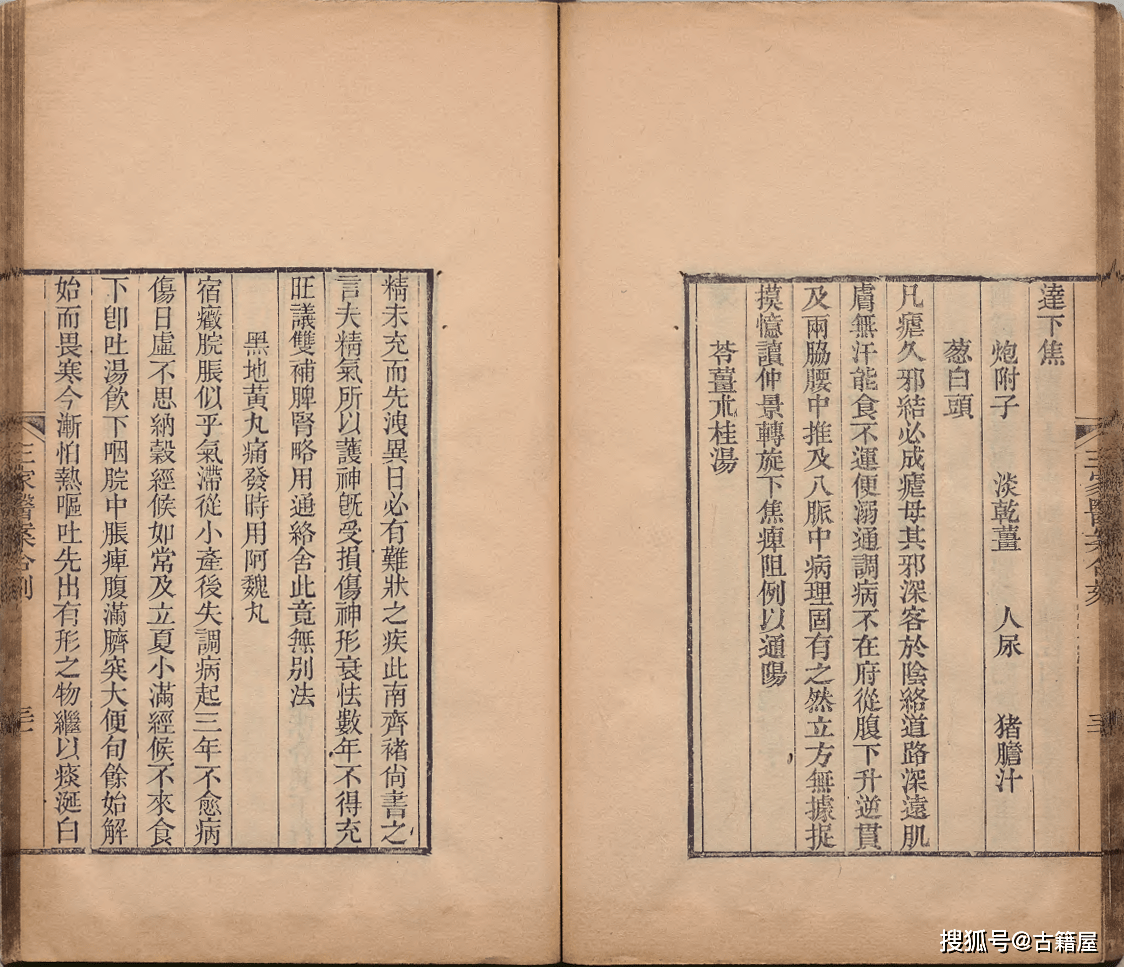 達下焦
炮附子　淡乾薑　人尿　猪膽汁
葱白頭
凡瘧久邪結必成瘧母其邪深客於陰絡道路深遠肌
膚無汗能食不運便溺通調病不在府從腹下升逆貫
及兩脇腰中推及八脈中病理固有之然立方無據捉
摸憶讀仲景轉旋下焦痺阻例以通陽
苓薑朮桂湯
三家醫案合刻
三
精未充而先洩異日必有難狀之疾此南齊褚尙書之
言夫精氣所以護神旣受損傷神形衰怯數年不得充
旺議雙補脾腎略用通絡舍此竟無別法
黑地黃丸痛發時用阿魏丸
宿癥脘脹似乎氣滯從小產後失調病起三年不愈病
傷日虛不思納穀經候如常及立夏小滿經候不來食
下卽吐湯飮下咽脘中脹痺腹滿臍突大便旬餘始解
始而畏寒今漸怕熱嘔吐先出有形之物繼以痰涎白
三家醫案合刻
搜狐号@古籍屋